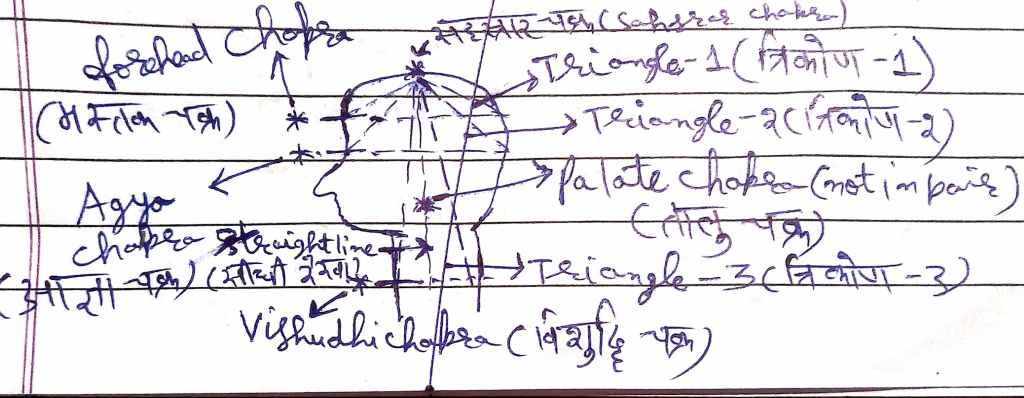 सहस्रार-चक्र (Sahsrar chakra)
forehead Chakra
(मस्तक-चक्र)
Triangle-1 (त्रिकोण-1)
Triangle-2 (त्रिकोण-2)
Agya
chakra
(आज्ञा-चक्र)
Palate chakra (not in pair)
(तालु-चक्र)
straight line
(सीधी रेखा)
Triangle-3 (त्रिकोण-3)
Vishudhi chakra (विशुद्धि-चक्र)